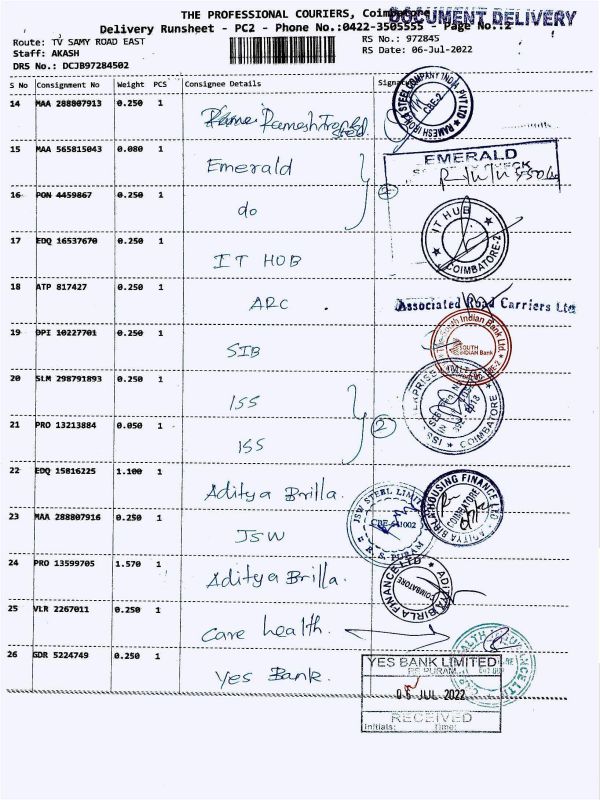 THE PROFESSIONAL COURIERS, Coimbatore
DOCUMENT DELIVERY
Delivery Runsheet - PC2 - Phone No.:0422-3505555 - Page No.:2
Route: TV SAMY ROAD EAST
RS No.: 972845
Staff: AKASH
RS Date: 06-Jul-2022
DRS No.: DCJB97284502
S No Consignment No Weight PCS Consignee Details Signature
14 MAA 288807913 0.250 1
Ramesh
RAMESH IRON & STEEL COMPANY INDIA PVT LTD
CBE-2
15 MAA 565815043 0.080 1 Emerald
EMERALD
16 PON 4459867 0.250 1 do
2
17 EDQ 16537670 0.250 1 IT HUB
IT HUB
COIMBATORE-2
18 ATP 817427 0.250 1 ARC .
Associated Road Carriers Ltd
19 OPI 10227701 0.250 1 SIB
The South Indian Bank Ltd.
SOUTH INDIAN Bank
CBE-2
20 SLM 298791893 0.250 1 ISS
21 PRO 13213884 0.050 1 ISS
2
ISS ENTERPRISE
COIMBATORE
22 EDQ 15816225 1.100 1 Aditya Brilla.
ADITYA BIRLA HOUSING FINANCE LTD
COIMBATORE
23 MAA 288807916 0.250 1 JSW
JSW STEEL LIMITED
CBE-641002
R.S. PURAM
24 PRO 13599705 1.570 1 Aditya Brilla.
ADITYA BIRLA FINANCE LTD
COIMBATORE
25 VLR 2267011 0.250 1 Care health.
HEALTH INSURANCE LTD
26 GDR 5224749 0.250 1 Yes Bank.
YES BANK LIMITED
RS PURAM
06 JUL 2022
RECEIVED
Initials: Time: